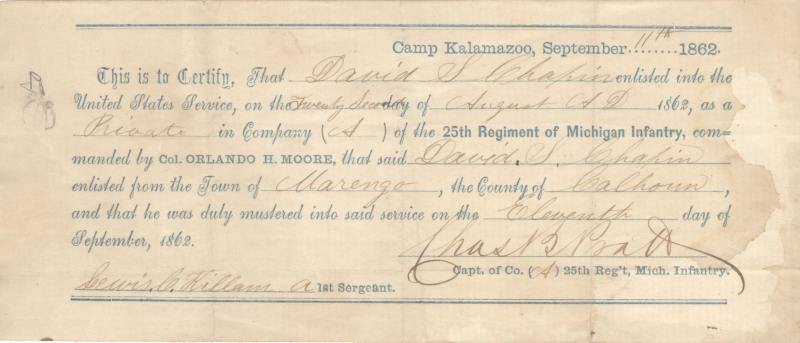 Camp Kalamazoo, September 11th 1862.
This is to Certify, That David S Chapin enlisted into the
United States Service, on the Twenty Second day of August A D 1862, as a
Private in Company (A) of the 25th Regiment of Michigan Infantry, com=
manded by Col. ORLANDO H. MOORE, that said David. S. Chapin
enlisted from the Town of Marengo, the County of Calhoun,
and that he was duly mustered into said service on the Eleventh day of
September, 1862.
Chas B Pratt
Capt. of Co. (A) 25th Reg't, Mich. Infantry.
Lewis. C. Killam A 1st Sergeant.